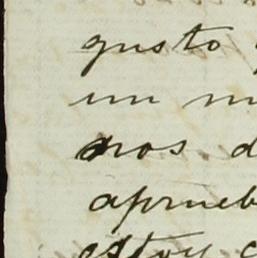 gusto
un m
nos d
aprueb
estoy c